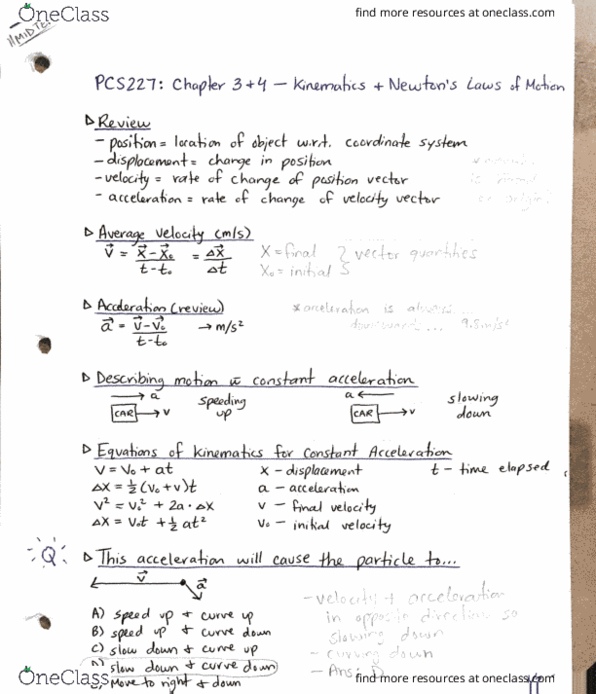 OneClass
find more resources at oneclass.com
PCS227: Chapter 3+4 — Kinematics + Newton's Laws of Motion
▷ Review
- position = location of object w.r.t. coordinate system
- displacement = change in position
- velocity = rate of change of position vector
- acceleration = rate of change of velocity vector
▷ Average Velocity (m/s)
v⃗ = (x⃗ - x⃗₀)/(t - t₀) = Δx⃗/Δt
x = final
x₀ = initial
} vector quantities
▷ Acceleration (review)
a⃗ = (v⃗ - v⃗₀)/(t - t₀) → m/s²
* acceleration is always
downwards...
▷ Describing motion w̄ constant acceleration
→ a
CAR → v
speeding up
a ←
CAR → v
slowing down
▷ Equations of Kinematics for Constant Acceleration
v = v₀ + at
x - displacement
t - time elapsed
Δx = ½(v₀ + v)t
a - acceleration
v² = v₀² + 2a · Δx
v - final velocity
Δx = v₀t + ½at²
v₀ - initial velocity
Q
▷ This acceleration will cause the particle to...
v⃗
a⃗
A) speed up + curve up
B) speed up + curve down
C) slow down + curve up
D) slow down + curve down
Move to right + down
- velocity + acceleration
in opposite direction so
slowing down
- curving down
- Ans: D
OneClass
find more resources at oneclass.com